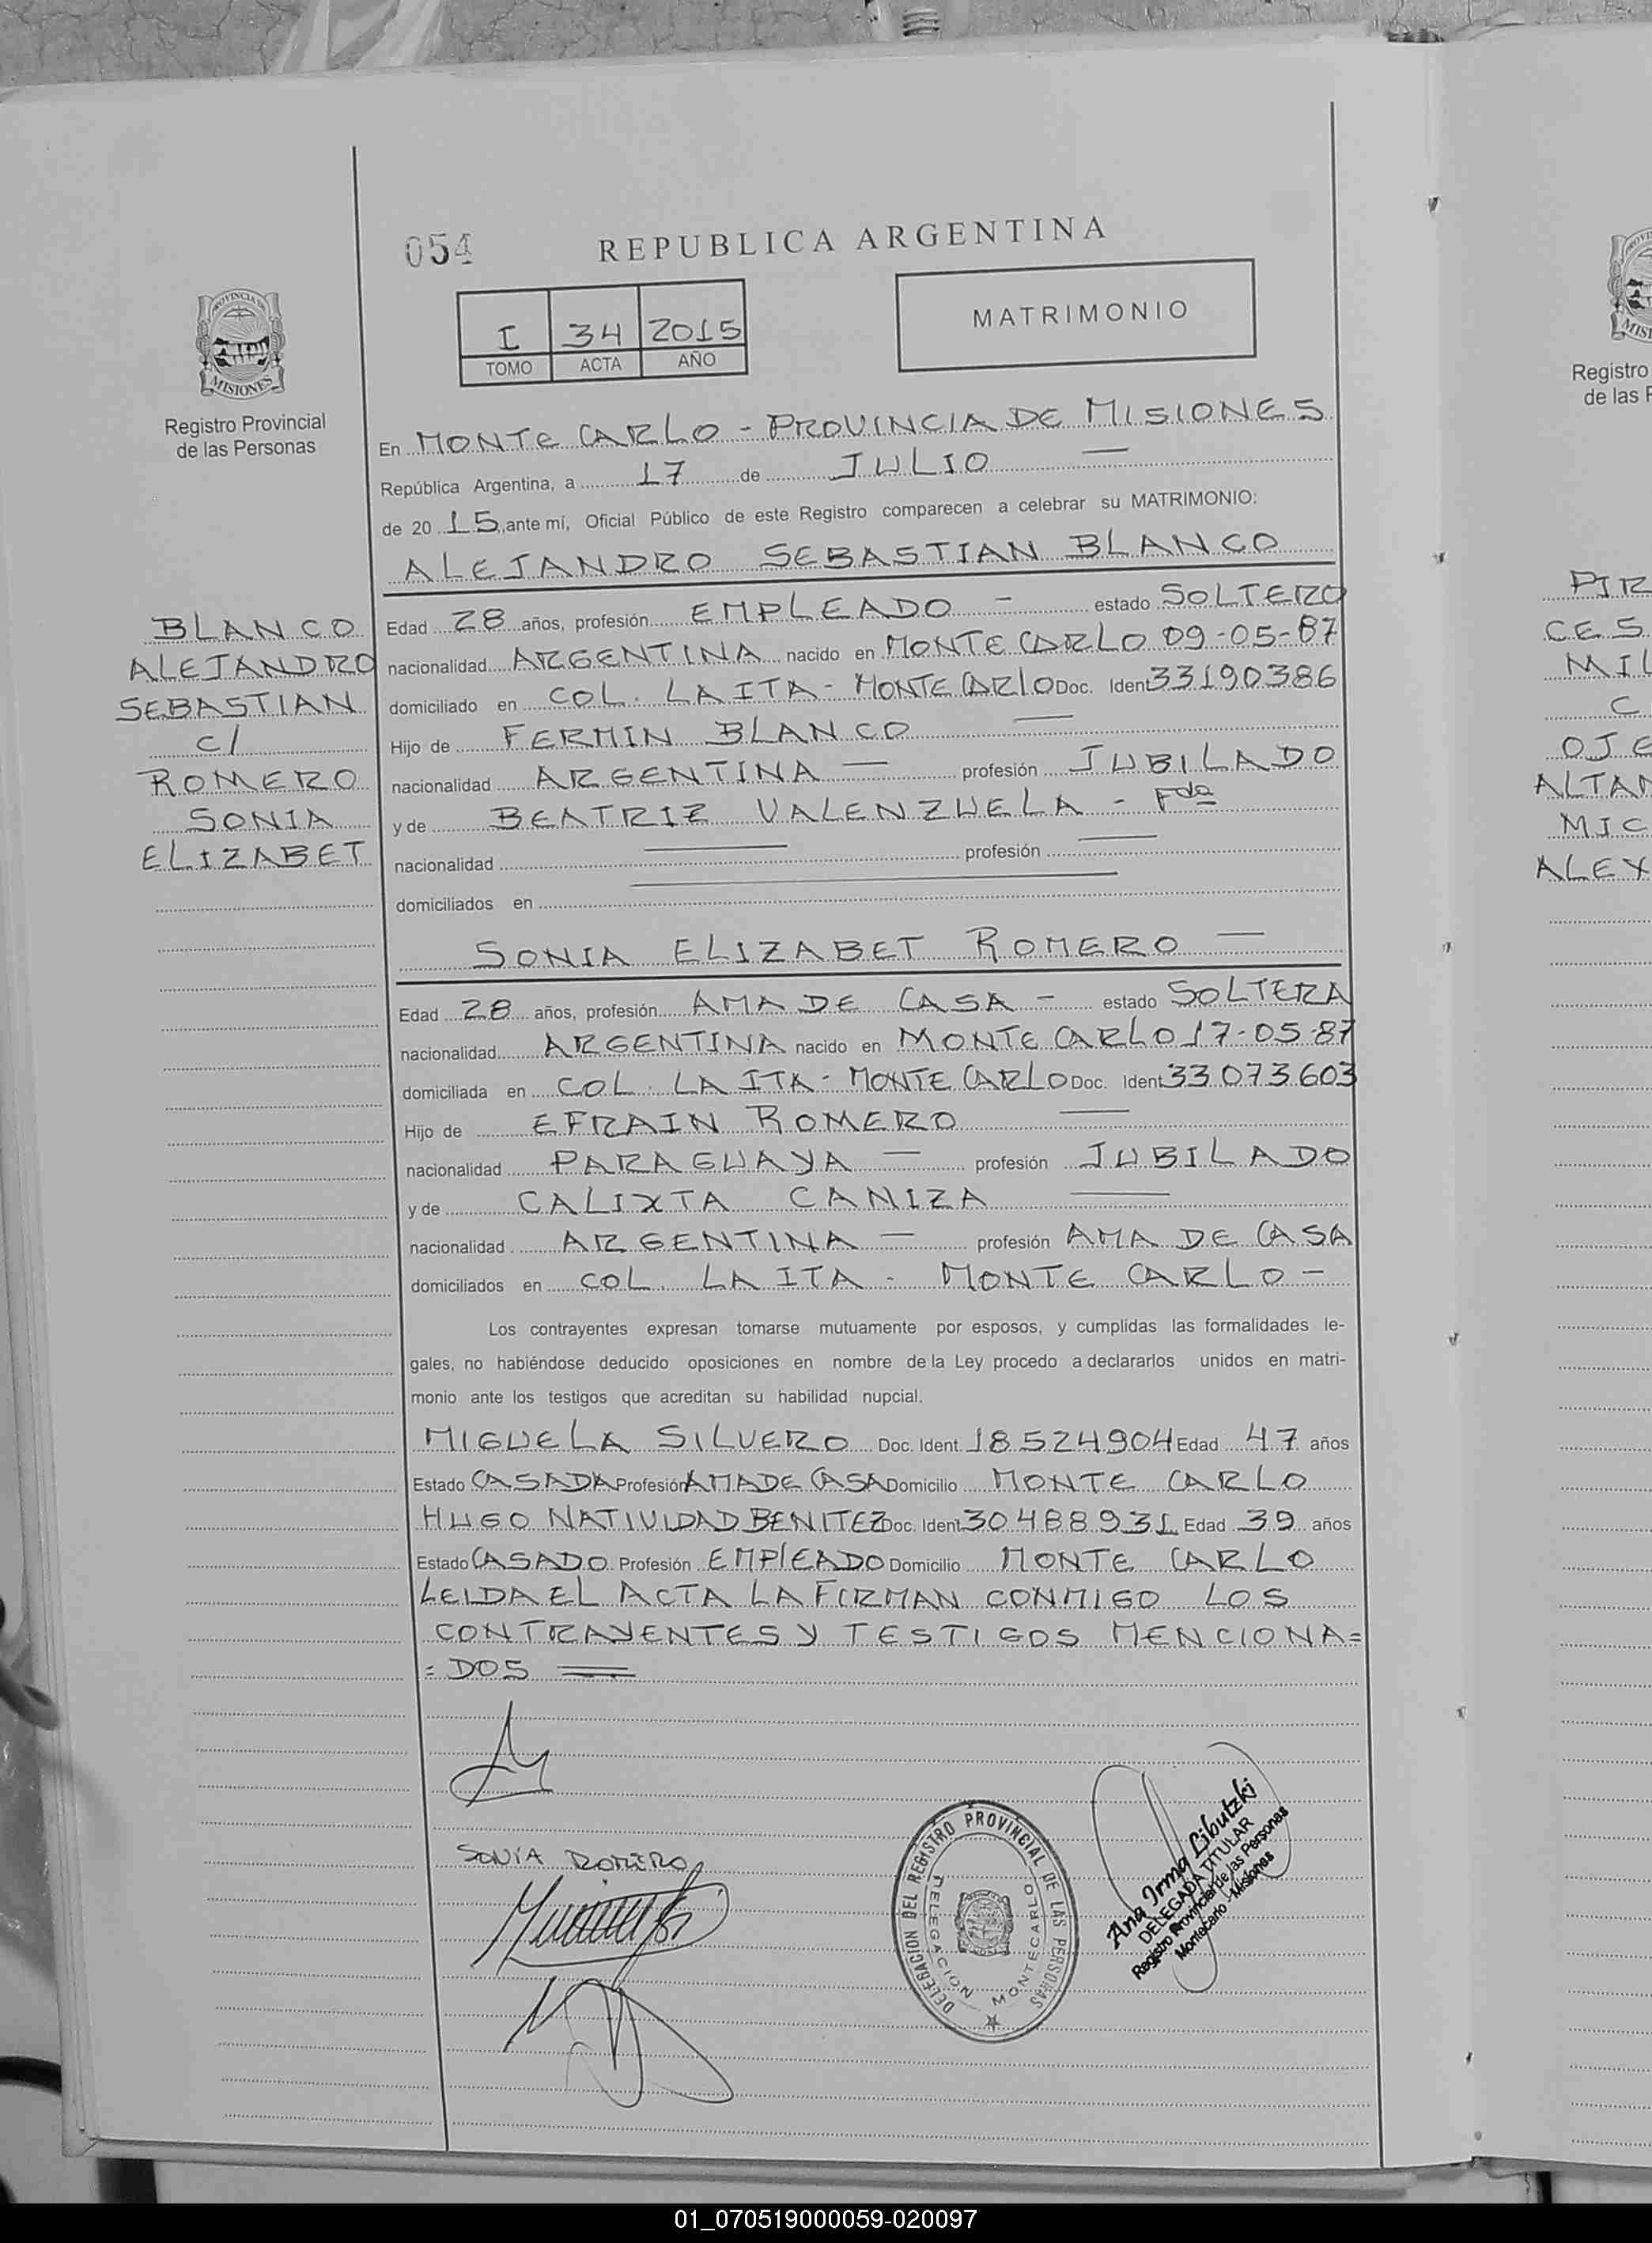 054
REPUBLICA ARGENTINA
I 34 2015
TOMO ACTA AÑO
MATRIMONIO
PROVINCIA DE
MISIONES
Registro Provincial
de las Personas
En MONTE CARLO - PROVINCIA DE MISIONES
República Argentina, a 17 de JULIO —
de 20 15, ante mí, Oficial Público de este Registro comparecen a celebrar su MATRIMONIO:
ALEJANDRO SEBASTIAN BLANCO
BLANCO
ALEJANDRO
SEBASTIAN
c/
ROMERO
SONIA
ELIZABET
Edad 28 años, profesión EMPLEADO - estado SOLTERO
nacionalidad ARGENTINA nacido en MONTE CARLO 09-05-87
domiciliado en COL. LA ITA - MONTE CARLO Doc. Ident 33190386
Hijo de FERMIN BLANCO —
nacionalidad ARGENTINA — profesión JUBILADO
y de BEATRIZ VALENZUELA - Fda
nacionalidad — profesión —
domiciliados en —
SONIA ELIZABET ROMERO —
Edad 28 años, profesión AMA DE CASA - estado SOLTERA
nacionalidad ARGENTINA nacido en MONTE CARLO 17-05-87
domiciliada en COL. LA ITA - MONTE CARLO Doc. Ident 33073603
Hijo de EFRAIN ROMERO —
nacionalidad PARAGUAYA — profesión JUBILADO
y de CALIXTA CANIZA —
nacionalidad ARGENTINA — profesión AMA DE CASA
domiciliados en COL. LA ITA - MONTE CARLO -
Los contrayentes expresan tomarse mutuamente por esposos, y cumplidas las formalidades le-
gales, no habiéndose deducido oposiciones en nombre de la Ley procedo a declararlos unidos en matri-
monio ante los testigos que acreditan su habilidad nupcial.
MIGUELA SILVERO Doc. Ident. 18524904 Edad 47 años
Estado CASADA Profesión AMA DE CASA Domicilio MONTE CARLO
HUGO NATIVIDAD BENITEZ Doc. Ident. 30488931 Edad 39 años
Estado CASADO Profesión EMPLEADO Domicilio MONTE CARLO
LEIDA EL ACTA LA FIRMAN CONMIGO LOS
CONTRAYENTES Y TESTIGOS MENCIONA=
=DOS =
SONIA ROMERO
DELEGACION DEL REGISTRO PROVINCIAL DE LAS PERSONAS
DELEGACION MONTECARLO
Ana Irma Libutzki
DELEGADA TITULAR
Registro Provincial de las Personas
Montecarlo - Misiones
Registro
de las P
PIR
CES
MIL
C
OJE
ALTAM
MIC
ALEX
01_070519000059-020097